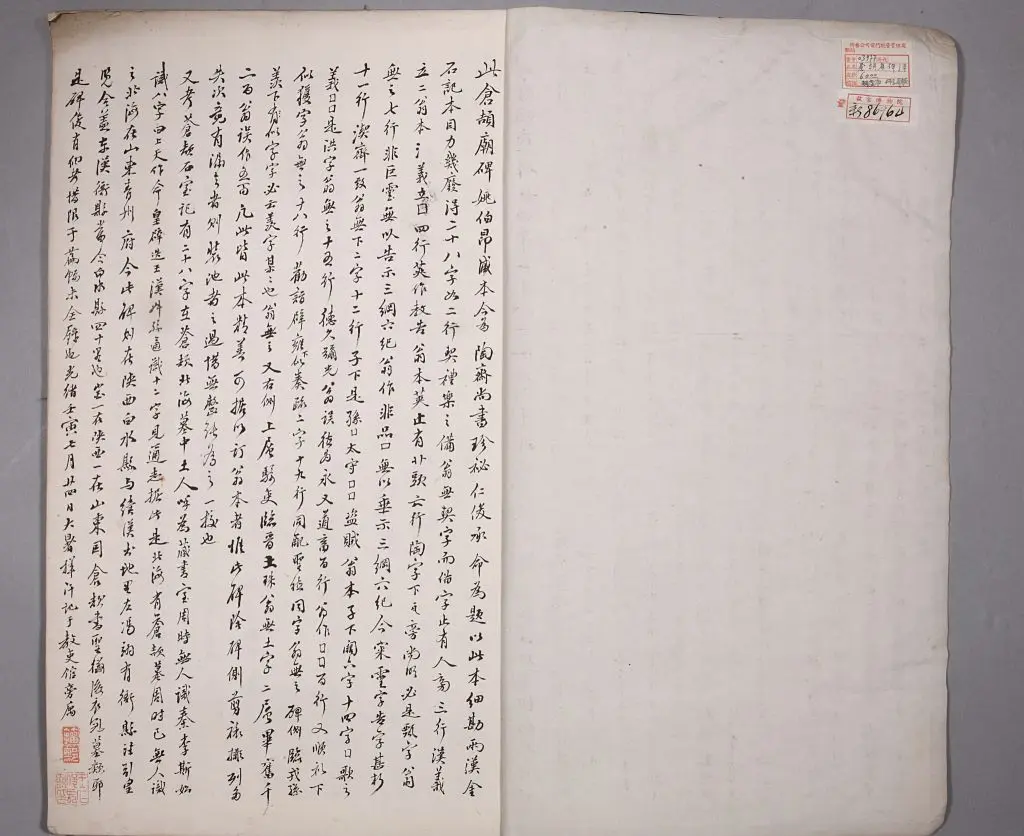 此倉頡廟碑姚伯昂藏本今為陶齋尚書珍祕仁俊承命為題以此本細勘兩漢金
石記本目力幾廢得二十八字如二行契禮樂之備翁無契字而備字止有人旁三行漢義
立二翁本立義四行英作教告翁本英止有廿頭六行陶字下瓦旁尚明必是甄字翁
無之七行非巨靈無以告示三綱六紀翁作非品口無以垂示三綱六紀今案靈字告字甚明
十一行濟濟一致翁無下二字十二行子下是孫口太守口口盜賊翁本子下闕六字十四字口歌之
義口口是洪字翁無之十五行德久彌光翁誤德為永又道畜百行翁作口口百行又順礼下
似獲字翁無之十八行勸詣辟雍下似奏疏二字十九行同翁無之碑側臨我孫
羨下有似字字必云羨字某之也翁無之又右側上層縣吏臨晉王珠翁無土字二層畢奮千
二百翁誤作五百凡此皆此本精善可據以訂翁本者惟此碑陰碑側剪裱排列多
失次竟有漏者則裝池者之過惜無整紙為之一校也
又考蒼頡石室記有二十八字在蒼頡北海墓中土人呼為藏書室周時無人識秦李斯始
識八字曰上天作命皇辟迭王漢叔孫通識十二字見通志據此是北海有蒼頡墓周時已無人識
之北海在山東青州府今此碑則在陝西白水縣與續漢書地里左馮翊有衙縣注引皇
覽合蓋東漢衙縣當今白水縣四十里也豈一在陝西一在山東同倉頡書聖猶後衣冠墓疑耶
是碑俊有細考惜限于篇幅未全錄也光緒壬寅七月廿四日大暑揮汗記于教吏館旁屬